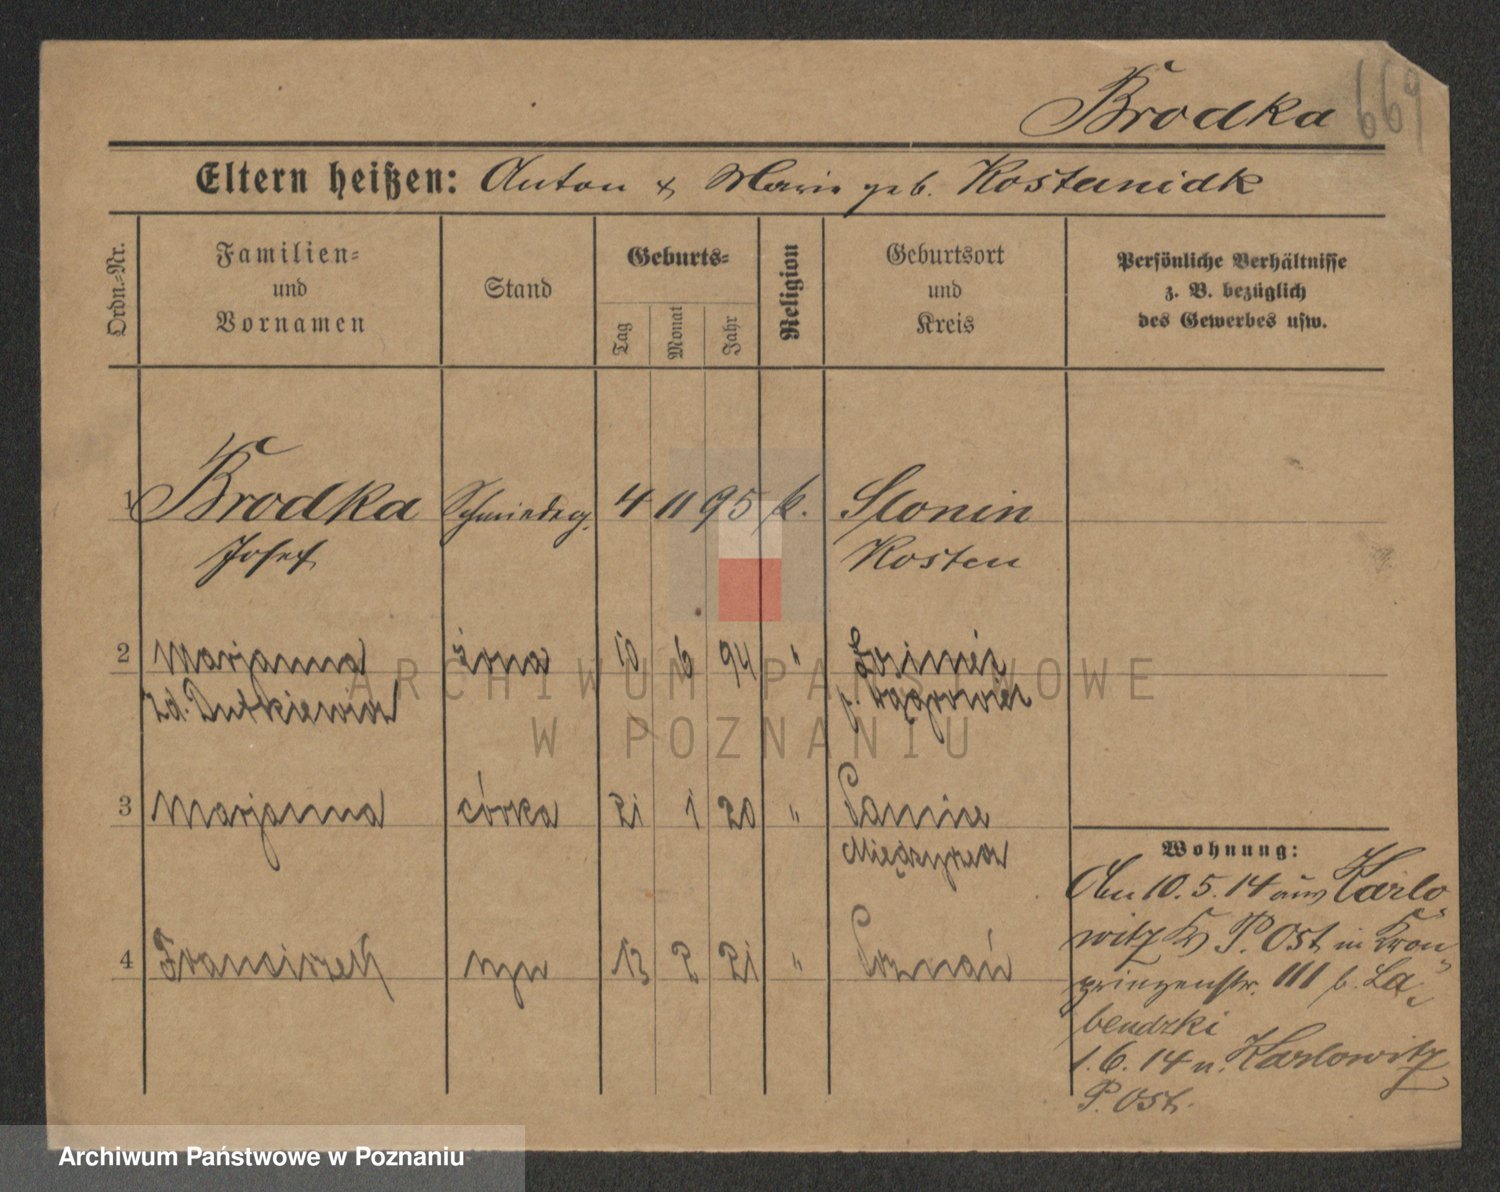 Brodka 669
Eltern heißen: Anton & Marie geb. Kostanidk
Ordn.-Nr.
Familien-
und
Vornamen
Stand
Geburts-
Tag
Monat
Jahr
Religion
Geburtsort
und
Kreis
Persönliche Verhältnisse
z. B. bezüglich
des Gewerbes usw.
1 Brodka Schmiedeg. 4 11 95 k. Slonin
Josef Kosten
2 Marjanna żona 10 6 94 "
zd. Dutkiewicz p. Wągrowiec
3 Marjanna córka 21 1 20 "
Międzyrzecz
4 Franciszek syn 13 2 21 " Poznań
Wohnung:
Am 10.5.14 aus Karlo-
witz Kr P. Ost in Kron-
prinzenstr. 111 b. La-
bendzki
1.6.14 n. Karlowitz
P. Ost.
ARCHIWUM PAŃSTWOWE
W POZNANIU
Archiwum Państwowe w Poznaniu